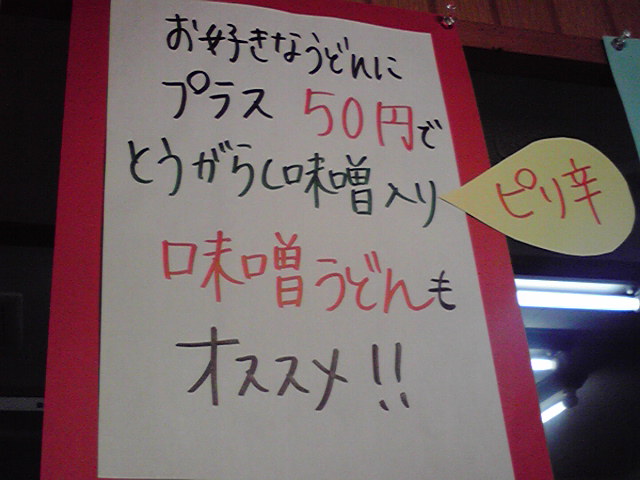 お好きなうどんに
プラス 50円で
とうがらし味噌入り
ピリ辛
味噌うどんも
オススメ!!